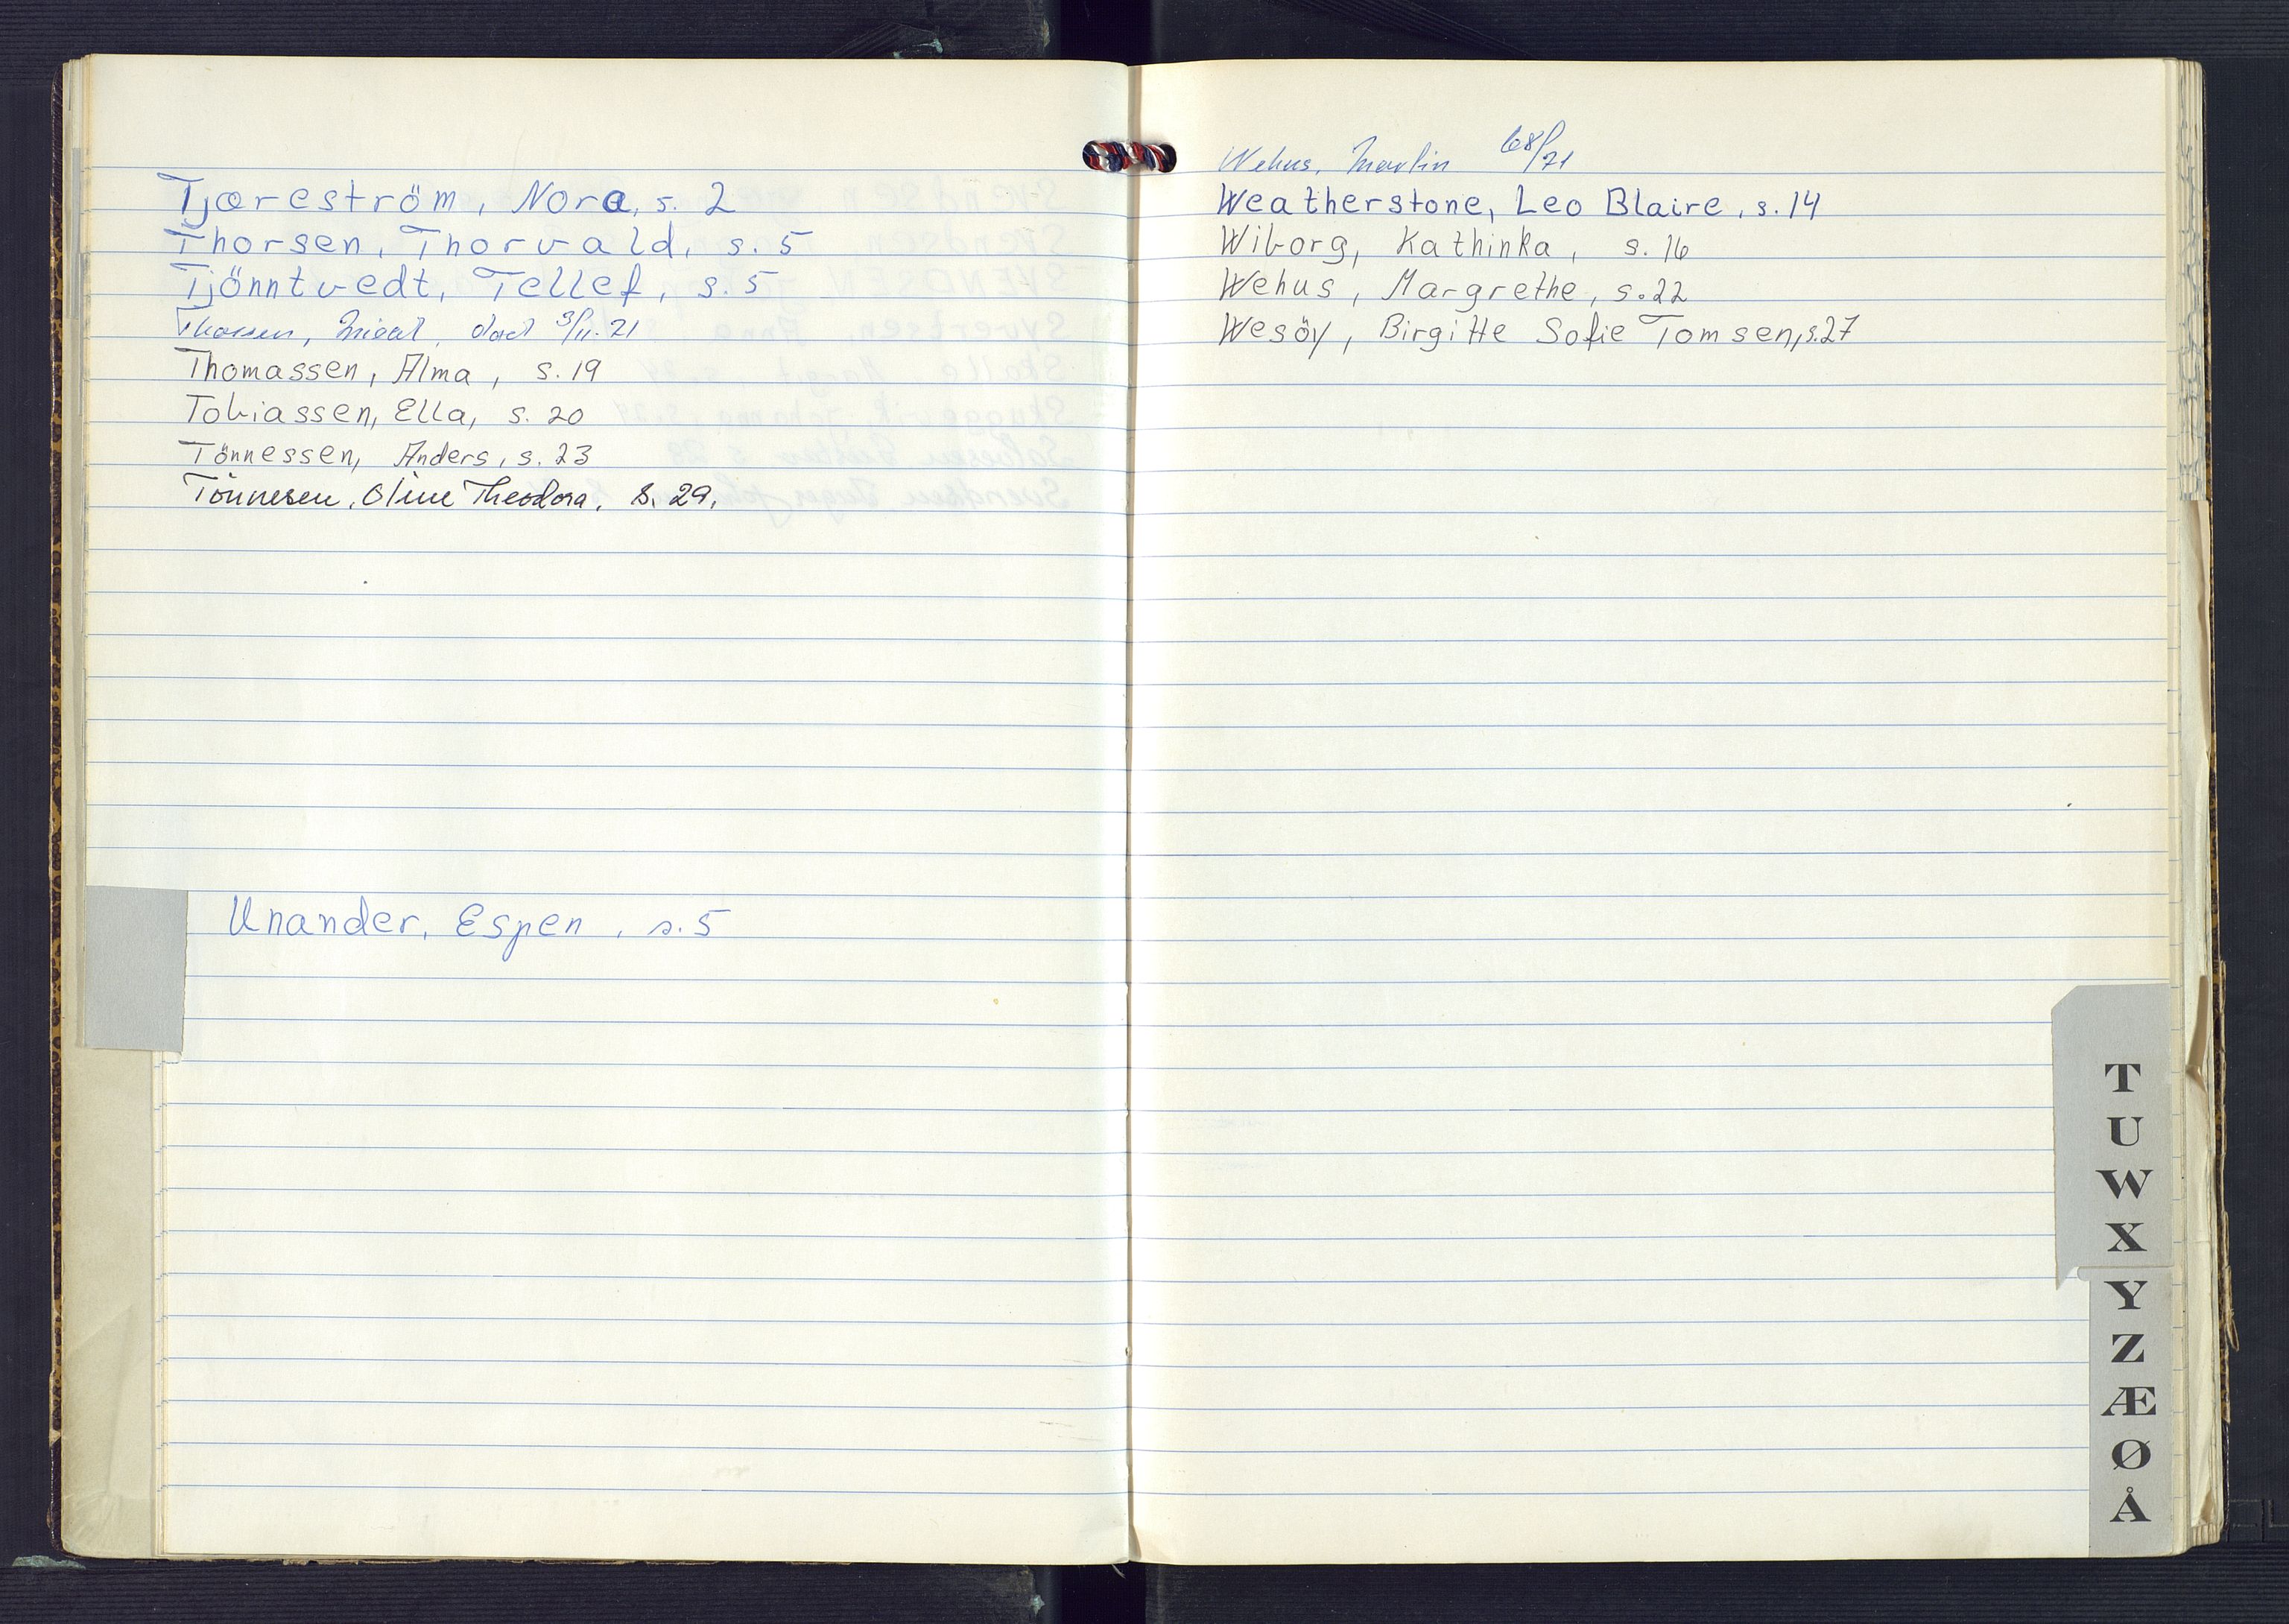 Tjæreström, Nora, s. 2
Thorsen, Thorvald, s. 5
Tjönntvedt, Tellef, s. 5
3/11.21
Thomassen, Alma, s. 19
Tobiassen, Ella, s. 20
Tönnessen, Anders, s. 23
Tönnesen, Oline Theodora, s. 29.
Unander, Espen, s. 5
Wehus, Martin 68/71
Weatherstone, Leo Blaire, s. 14
Wiborg, Kathinka, s. 16
Wehus, Margrethe, s. 22
Wesöy, Birgitte Sofie Tomsen, s. 27
T
U
W
X
Y
Z
Æ
Ø
Å